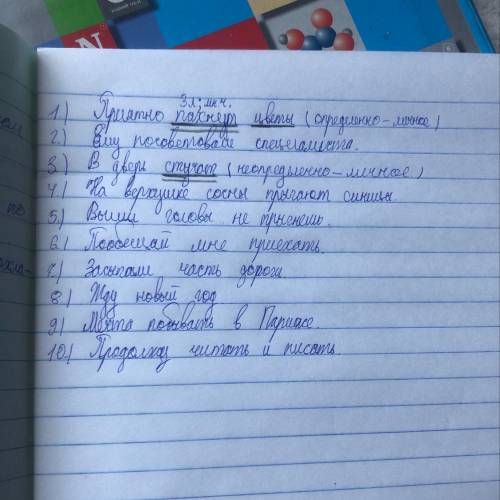 3л; мн.ч.
1.) Приятно пахнут цветы (определенно-личное)
2.) Ему посоветовали специалиста.
3.) В дверь стучат (неопределенно-личное)
4.) На верхушке сосны прыгают синицы.
5.) Выше головы не прыгнешь.
6.) Пообещай мне приехать.
7.) Засыпали часть дороги.
8.) Жду новый год
9.) Мечта побывать в Париже.
10.) Продолжаю читать и писать.